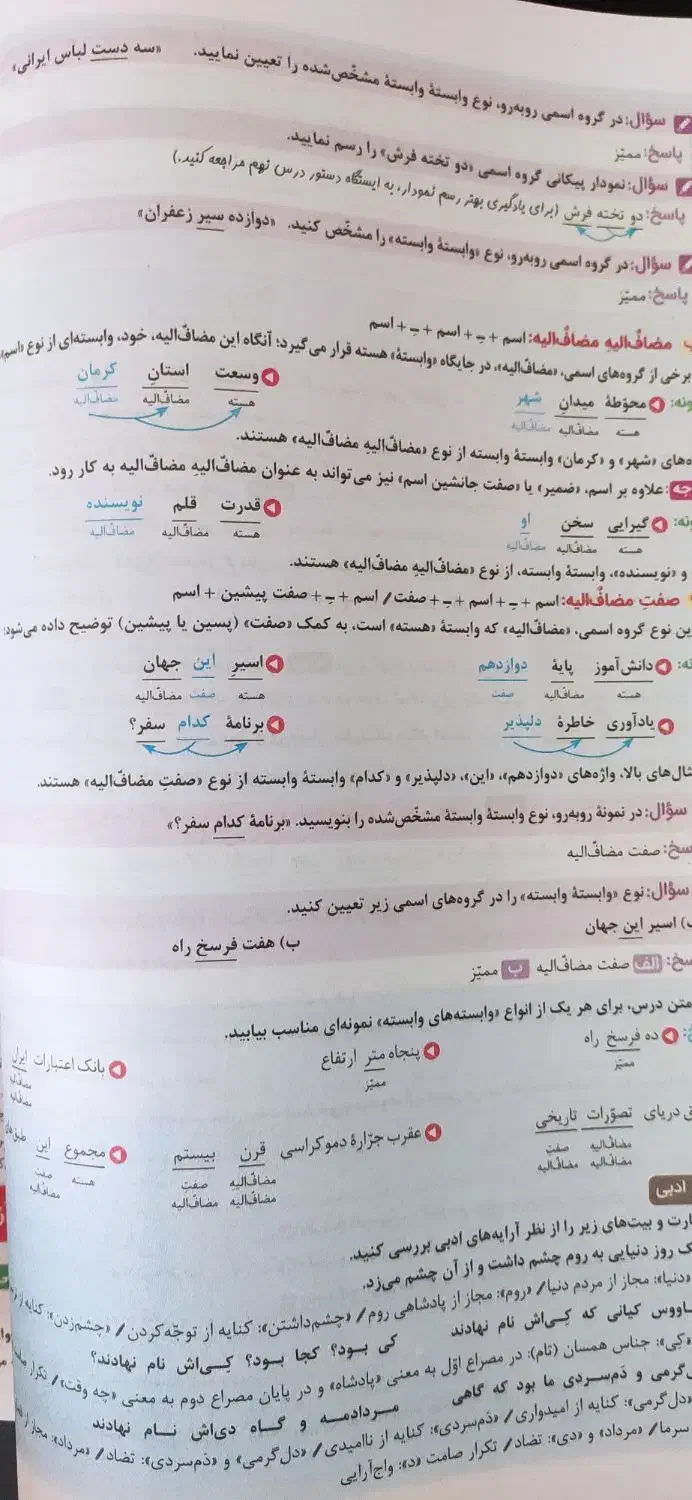 سؤال: در گروه اسمی روبه‌رو، نوع وابستهٔ وابستهٔ مشخّص‌شده را تعیین نمایید. «سه دست لباس ایرانی»
پاسخ: ممیّز
سؤال: نمودار پیکانی گروه اسمی «دو تخته فرش» را رسم نمایید.
پاسخ: دو تخته فرش (برای یادگیری بهتر رسم نمودار، به ایستگاه دستور درس نهم مراجعه کنید.)
سؤال: در گروه اسمی روبه‌رو، نوع «وابستهٔ وابسته» را مشخّص کنید. «دوازده سیر زعفران»
پاسخ: ممیّز
مضافٌ‌الیهِ مضافٌ‌الیه: اسم + ـِ + اسم + ـِ + اسم
برخی از گروه‌های اسمی، «مضافٌ‌الیه»، در جایگاه «وابستهٔ» هسته قرار می‌گیرد؛ آنگاه این مضافٌ‌الیه، خود، وابسته‌ای از نوع «اسم»
محوّطهٔ میدانِ شهر وسعت استانِ کرمان
هسته مضافٌ‌الیه مضافٌ‌الیه هسته مضافٌ‌الیه مضافٌ‌الیه
های «شهر» و «کرمان» وابستهٔ وابسته از نوع «مضافٌ‌الیهِ مضافٌ‌الیه» هستند.
علاوه بر اسم، «ضمیر» یا «صفت جانشین اسم» نیز می‌تواند به عنوان مضافٌ‌الیهِ مضافٌ‌الیه به کار رود.
گیراییِ سخنِ او قدرت قلم نویسنده
هسته مضافٌ‌الیه مضافٌ‌الیه هسته مضافٌ‌الیه مضافٌ‌الیه
و «نویسنده»، وابستهٔ وابسته، از نوع «مضافٌ‌الیهِ مضافٌ‌الیه» هستند.
صفتِ مضافٌ‌الیه: اسم + ـِ + اسم + ـِ + صفت / اسم + ـِ + صفت پیشین + اسم
این نوع گروه اسمی، «مضافٌ‌الیه» که وابستهٔ «هسته» است، به کمک «صفت» (پسین یا پیشین) توضیح داده می‌شود:
دانش‌آموز پایهٔ دوازدهم اسیرِ این جهان
هسته مضافٌ‌الیه صفت هسته صفت مضافٌ‌الیه
یادآوری خاطرهٔ دلپذیر برنامهٔ کدام سفر؟
مثال‌های بالا، واژه‌های «دوازدهم»، «این»، «دلپذیر» و «کدام» وابستهٔ وابسته از نوع «صفتِ مضافٌ‌الیه» هستند.
سؤال: در نمونهٔ روبه‌رو، نوع وابستهٔ وابستهٔ مشخّص‌شده را بنویسید. «برنامهٔ کدام سفر؟»
پاسخ: صفت مضافٌ‌الیه
سؤال: نوع «وابستهٔ وابسته» را در گروه‌های اسمی زیر تعیین کنید.
اسیر این جهان ب) هفت فرسخ راه
پاسخ: الف صفت مضافٌ‌الیه ب ممیّز
متن درس، برای هر یک از انواع «وابسته‌های وابسته» نمونه‌ای مناسب بیابید.
ده فرسخ راه پنجاه متر ارتفاع بانک اعتبارات ایران
ممیّز ممیّز مضافٌ‌الیه مضافٌ‌الیه
دریای تصوّرات تاریخی عقرب جرّارهٔ دموکراسی قرن بیستم مجموع این
مضافٌ‌الیه صفتِ مضافٌ‌الیه صفتِ هسته صفت
مضافٌ‌الیه مضافٌ‌الیه مضافٌ‌الیه مضافٌ‌الیه مضافٌ‌الیه
ادبی
عبارت و بیت‌های زیر را از نظر آرایه‌های ادبی بررسی کنید.
یک روز دنیایی به روم چشم داشت و از آن چشم می‌زد.
«دنیا»: مجاز از مردم دنیا / «روم»: مجاز از پادشاهی روم / «چشم‌داشتن»: کنایه از توجّه‌کردن / «چشم‌زدن»: کنایه از
کاووس کیانی که کِی‌اش نام نهادند کی بود؟ کجا بود؟ کِی‌اش نام نهادند؟
«کِی»: جناس همسان (تام): در مصراع اوّل به معنی «پادشاه» و در پایان مصراع دوم به معنی «چه وقت» / تکرار
دل‌گرمی و دَم‌سردی ما بود که گاهی مردادمه و گاه دی‌اش نام نهادند
«دل‌گرمی»: کنایه از امیدواری / «دَم‌سردی»: کنایه از ناامیدی / «دل‌گرمی» و «دَم‌سردی»: تضاد / «مرداد»: مجاز از
سرما / «مرداد» و «دی»: تضاد / تکرار صامت «د»: واج‌آرایی